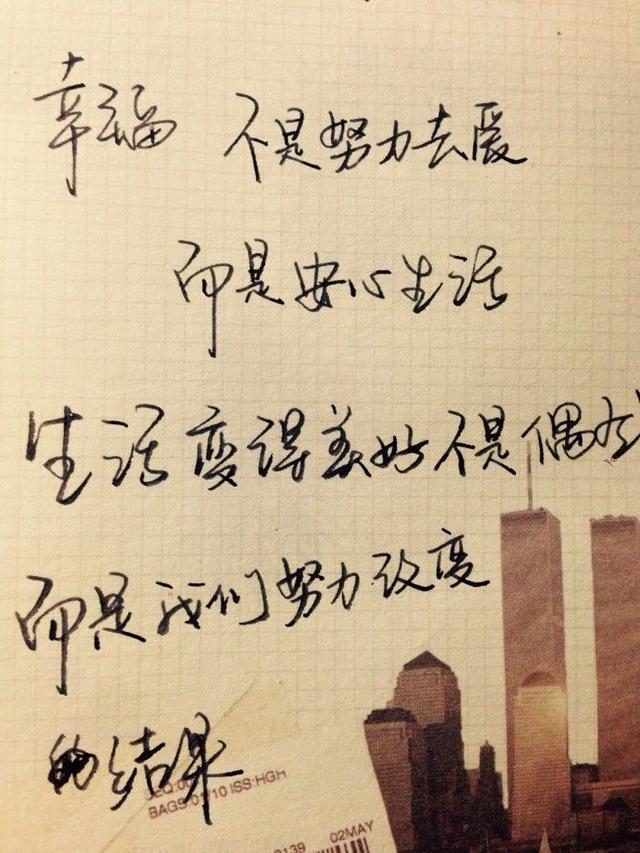 幸福 不是努力去爱
而是安心生活
生活变得美好不是偶然
而是我们努力改变
的结果
BAGS:01/10 ISS:HGH
0139 02MAY